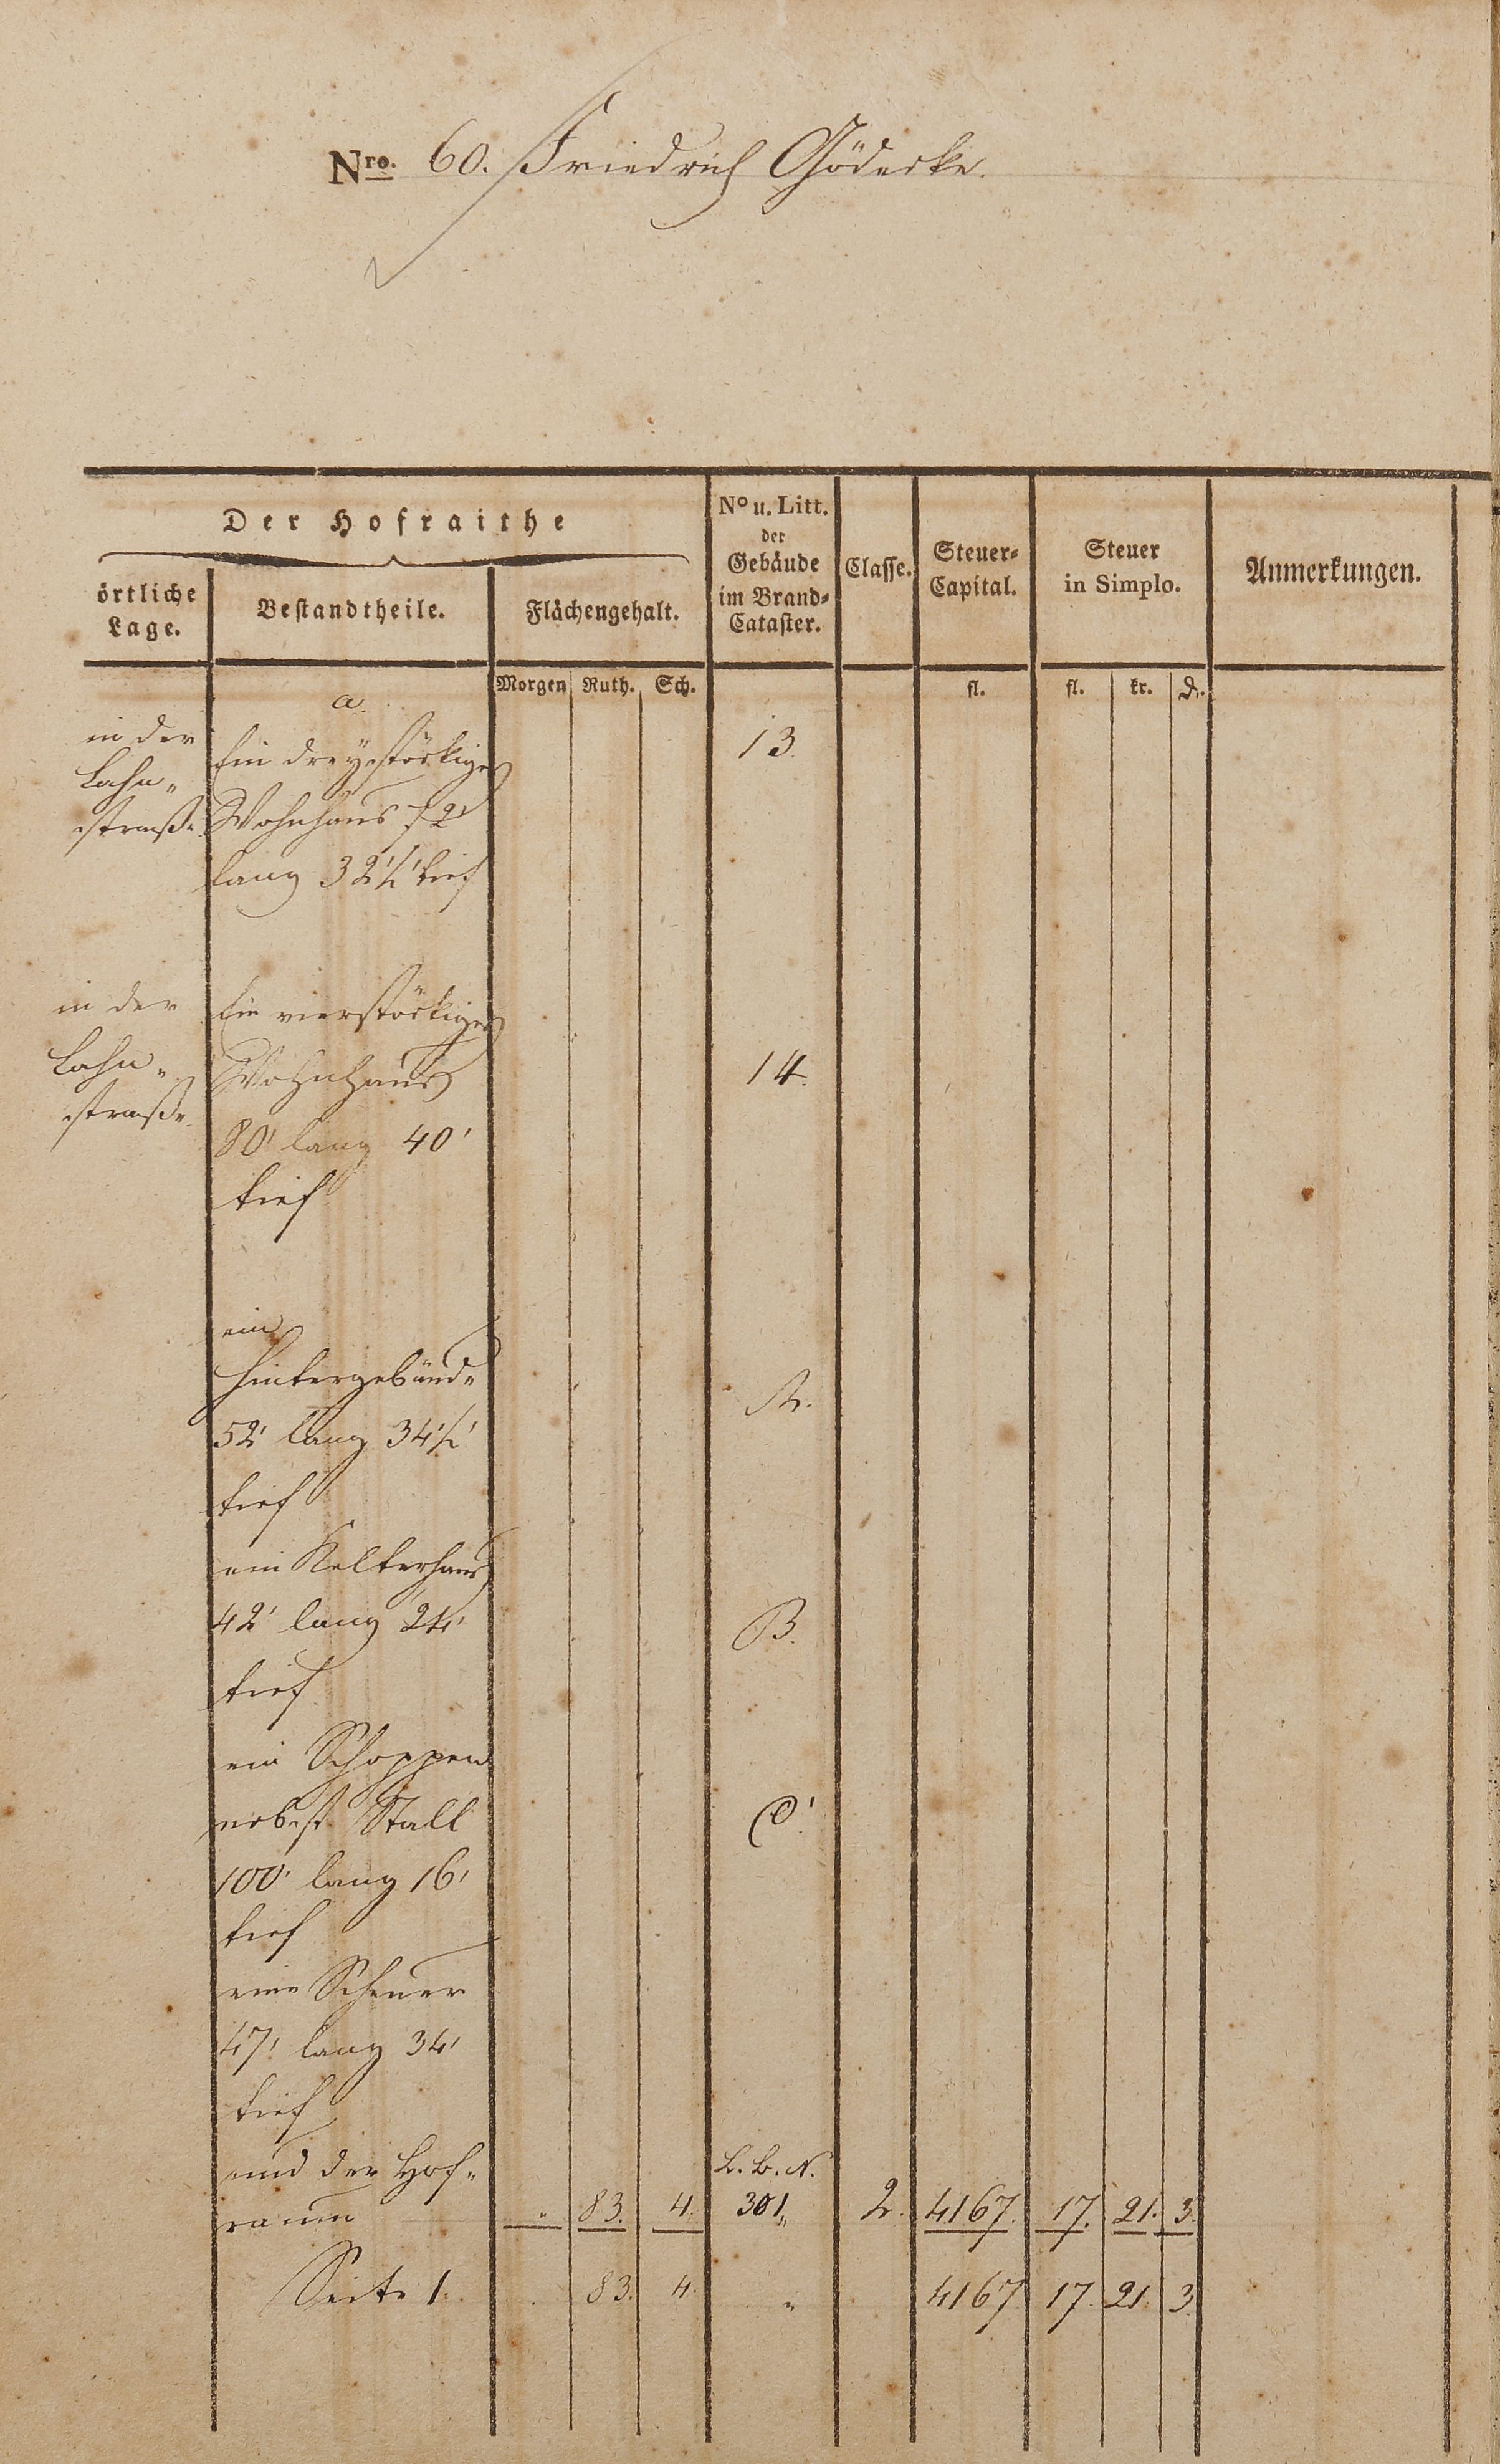 Nro. 60. Friedrich Gödecke.
Der Hofraithe
örtliche Lage.
Bestandtheile.
Flächengehalt.
No u. Litt. der Gebäude im Brand-Cataster.
Classe.
Steuer-Capital.
Steuer in Simplo.
Anmerkungen.
Morgen Ruth. Sch. fl. fl. kr. d.
a.
in der Ein dreystöckiges 13.
Lahn- Wohnhaus 72'
straße lang 32½' tief
in der Ein vierstöckiges
Lahn- Wohnhaus 14.
straße 80' lang 40'
tief
ein
Hintergebäude A.
52' lang 34½'
tief
ein Kelterhaus
42' lang 24' B.
tief
ein Schoppen
nebst Stall C.
100' lang 16'
tief
eine Scheuer
47' lang 34'
tief
und der Hof- L. B. N.
raum " 83. 4. 301 " 2. 4167. 17. 21. 3.
Seite 1. . 83. 4. " 4167 17. 21. 3.